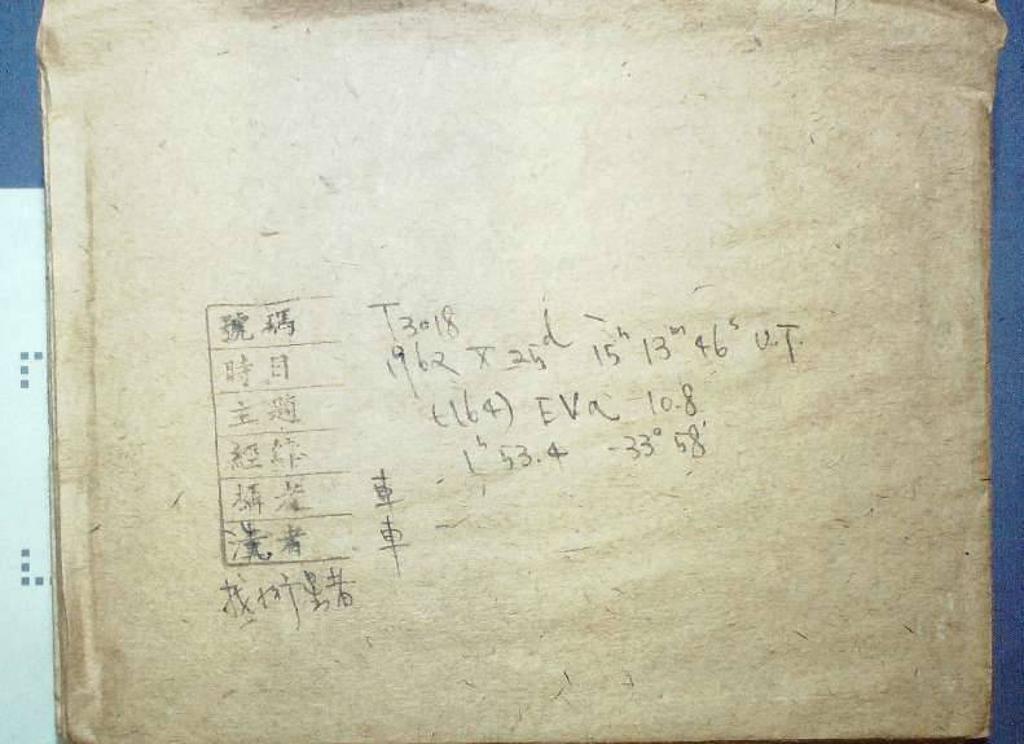 號碼 T3018
時日 1962 X 25d 15h 13m 46s U.T.
主題 (164) EVA 10.8
經緯 1h 53.4 -33° 58'
攝者 車
洗者 車